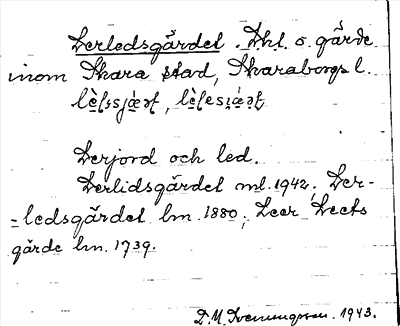 Lerledsgärdet. Lht. o. gärde
inom Skara stad, Skaraborgs l.
Lerjord och led.
Lerlidsgärdet ml. 1942; Ler-
=ledsgärdet lm. 1880; Leer Leets
gärde lm. 1739.
D. M. Svenungsson. 1943.